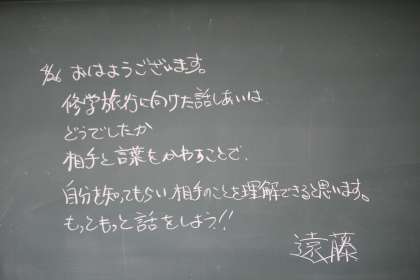 4/26 おはようございます。
修学旅行に向けた話しあいは
どうでしたか
相手と言葉をかわすことで、
自分を知ってもらい相手のことを理解できると思います。
もってもっと話をしよう!!
遠藤